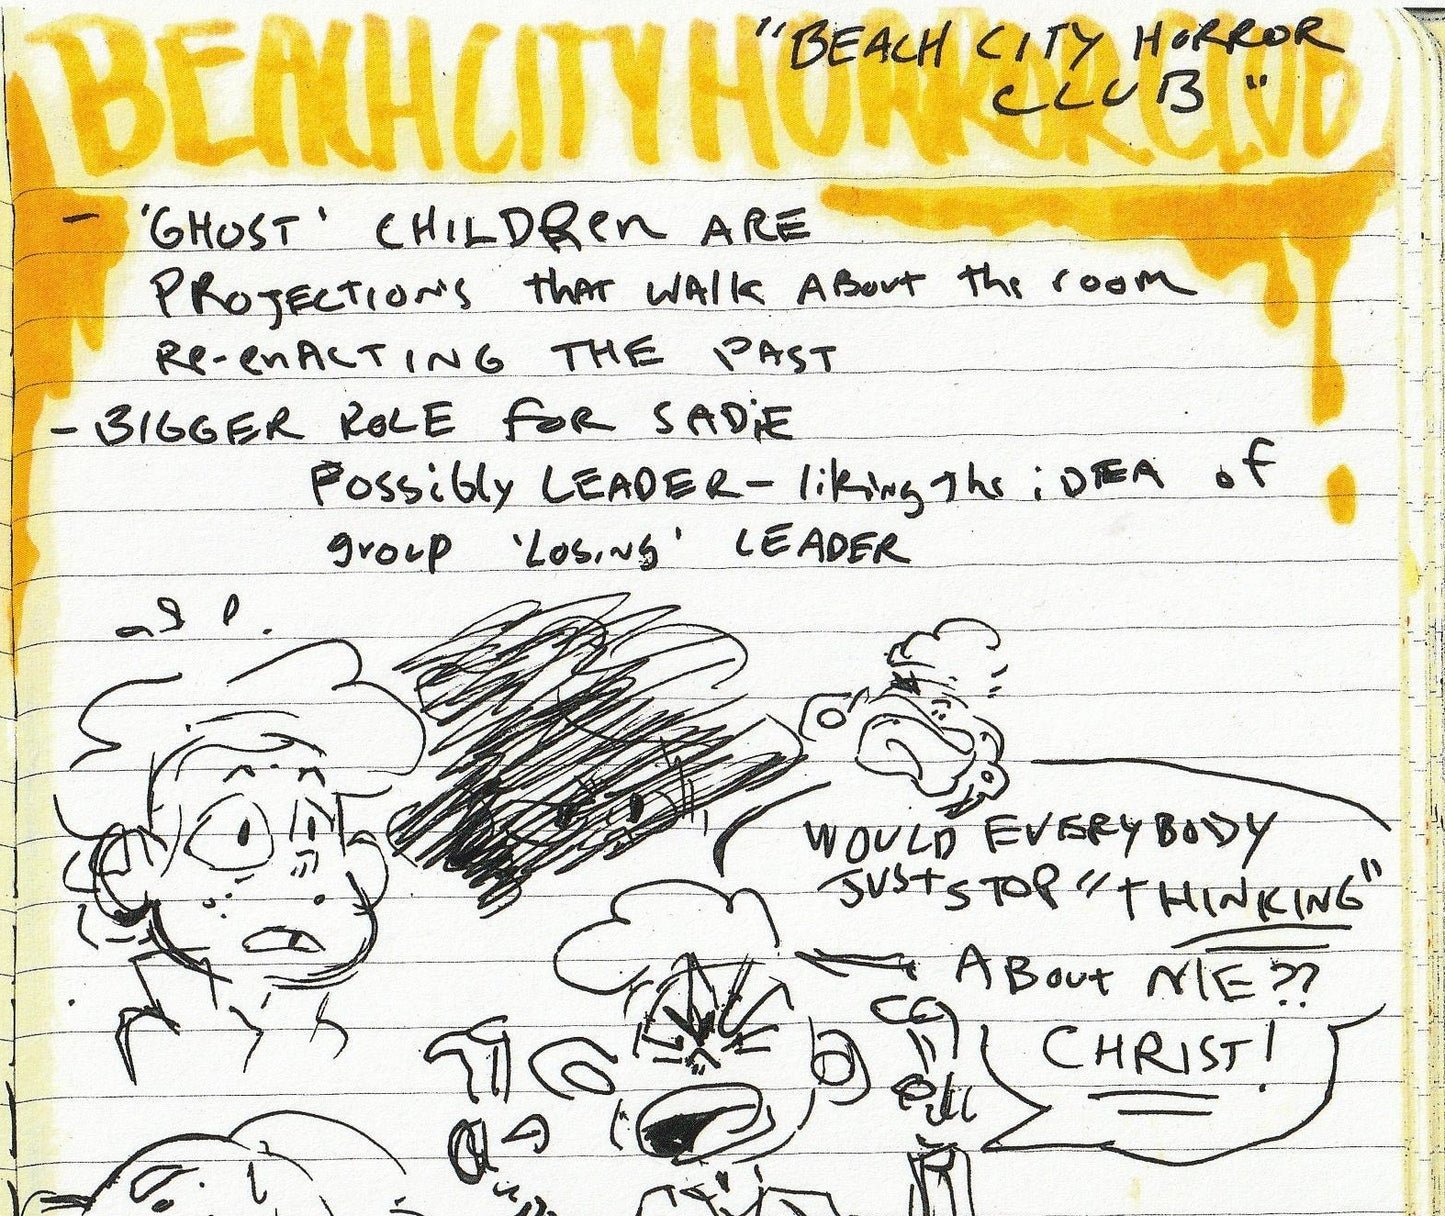 BEACH CITY HORROR CLUB
"BEACH CITY HORROR
CLUB"
- 'GHOST' CHILDRen ARE
PROJECTIONS that WALK ABout the room
Re-enACTING THE PAST
- BIGGER ROLE FOR SADiE
Possibly LEADER - liking the iDEA of
group 'Losing' LEADER
WOULD EVERYBODY
JUST STOP "THINKING"
ABout ME??
CHRIST!